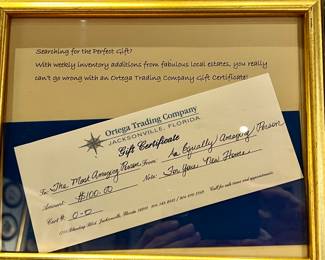 Searching for the Perfect Gift?
With weekly inventory additions from fabulous local estates, you really
can't go wrong with an Ortega Trading Company Gift Certificate!
Ortega Trading Company
JACKSONVILLE, FLORIDA
Gift Certificate
To: The Most Amazing Person From: An Equally Amazing Person
Amount: $100.00 Note: For Your New Home
Cert #: 0-0
Jacksonville, Florida Call for sale times and appointments.